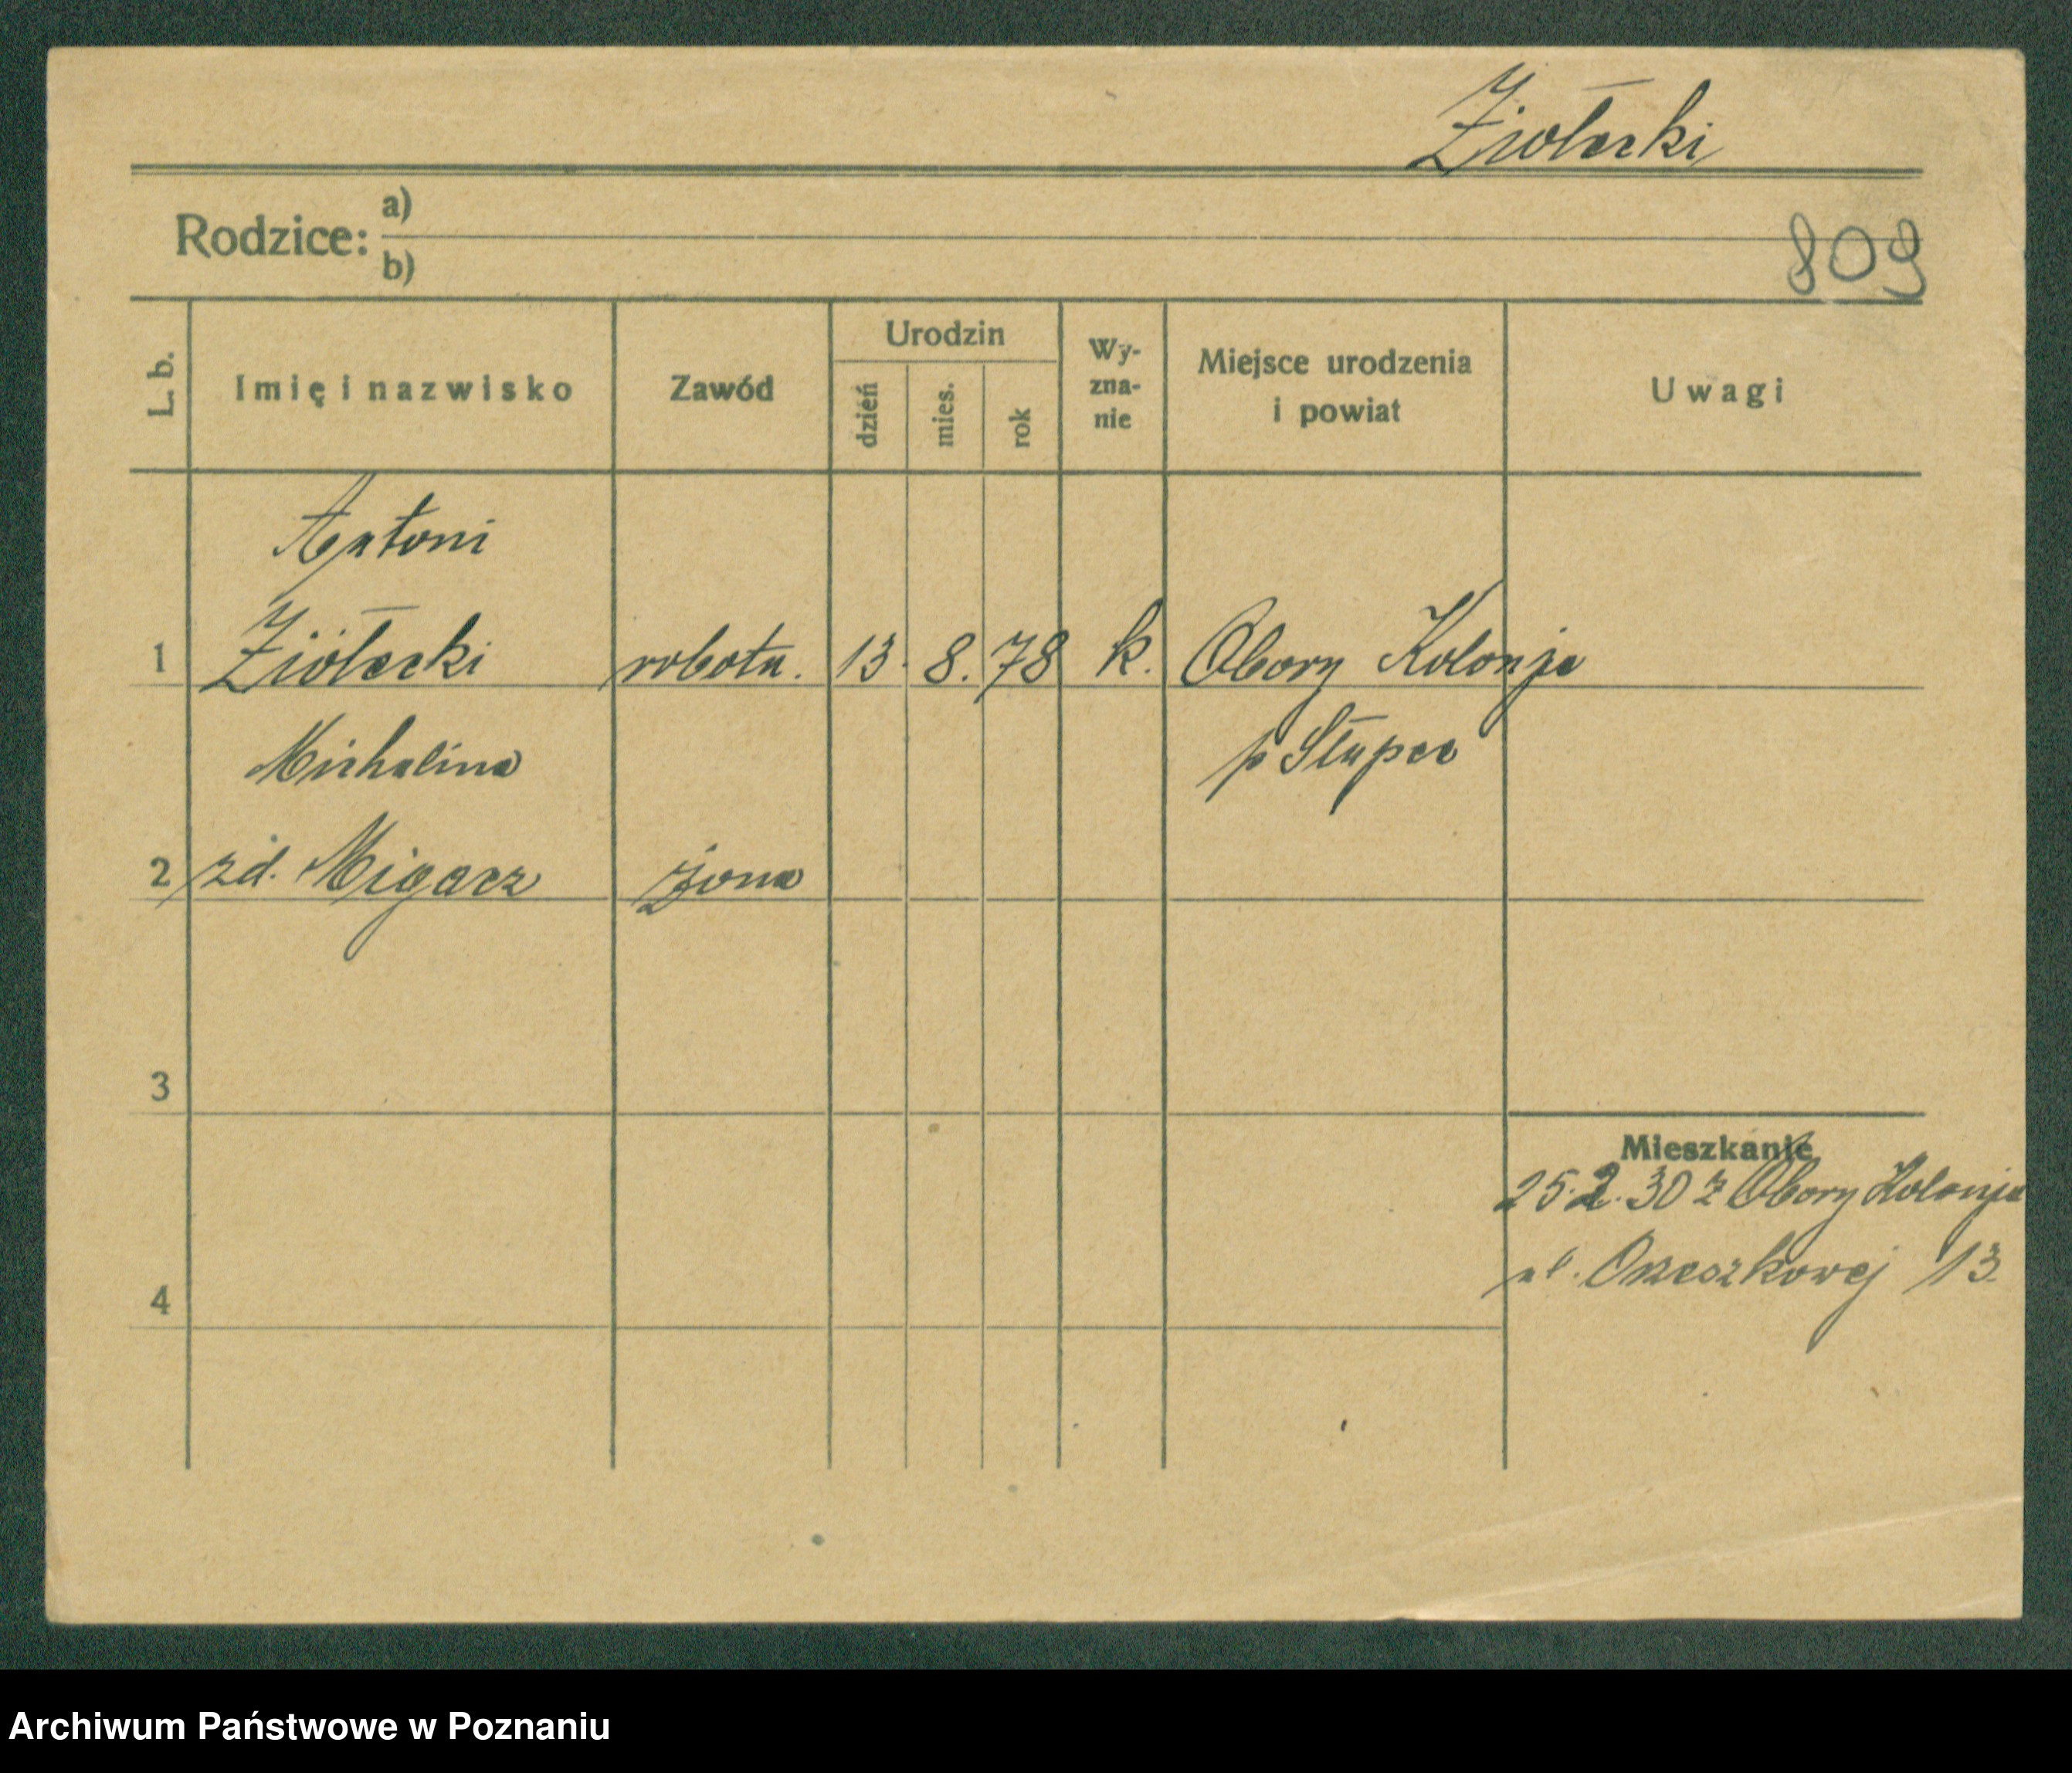 Ziołecki
Rodzice: a)
b)
809
L. b.
Imię i nazwisko
Zawód
Urodzin
dzień
mies.
rok
Wy-
zna-
nie
Miejsce urodzenia
i powiat
Uwagi
Antoni
1 Ziółecki robotn. 13. 8. 78 k. Obory Kolonja
Michalina p Słupca
2 zd. Migacz żona
3
Mieszkanie
25.2.30 z Obory Kolonja
ul. Orzeszkowej 13.
4
Archiwum Państwowe w Poznaniu